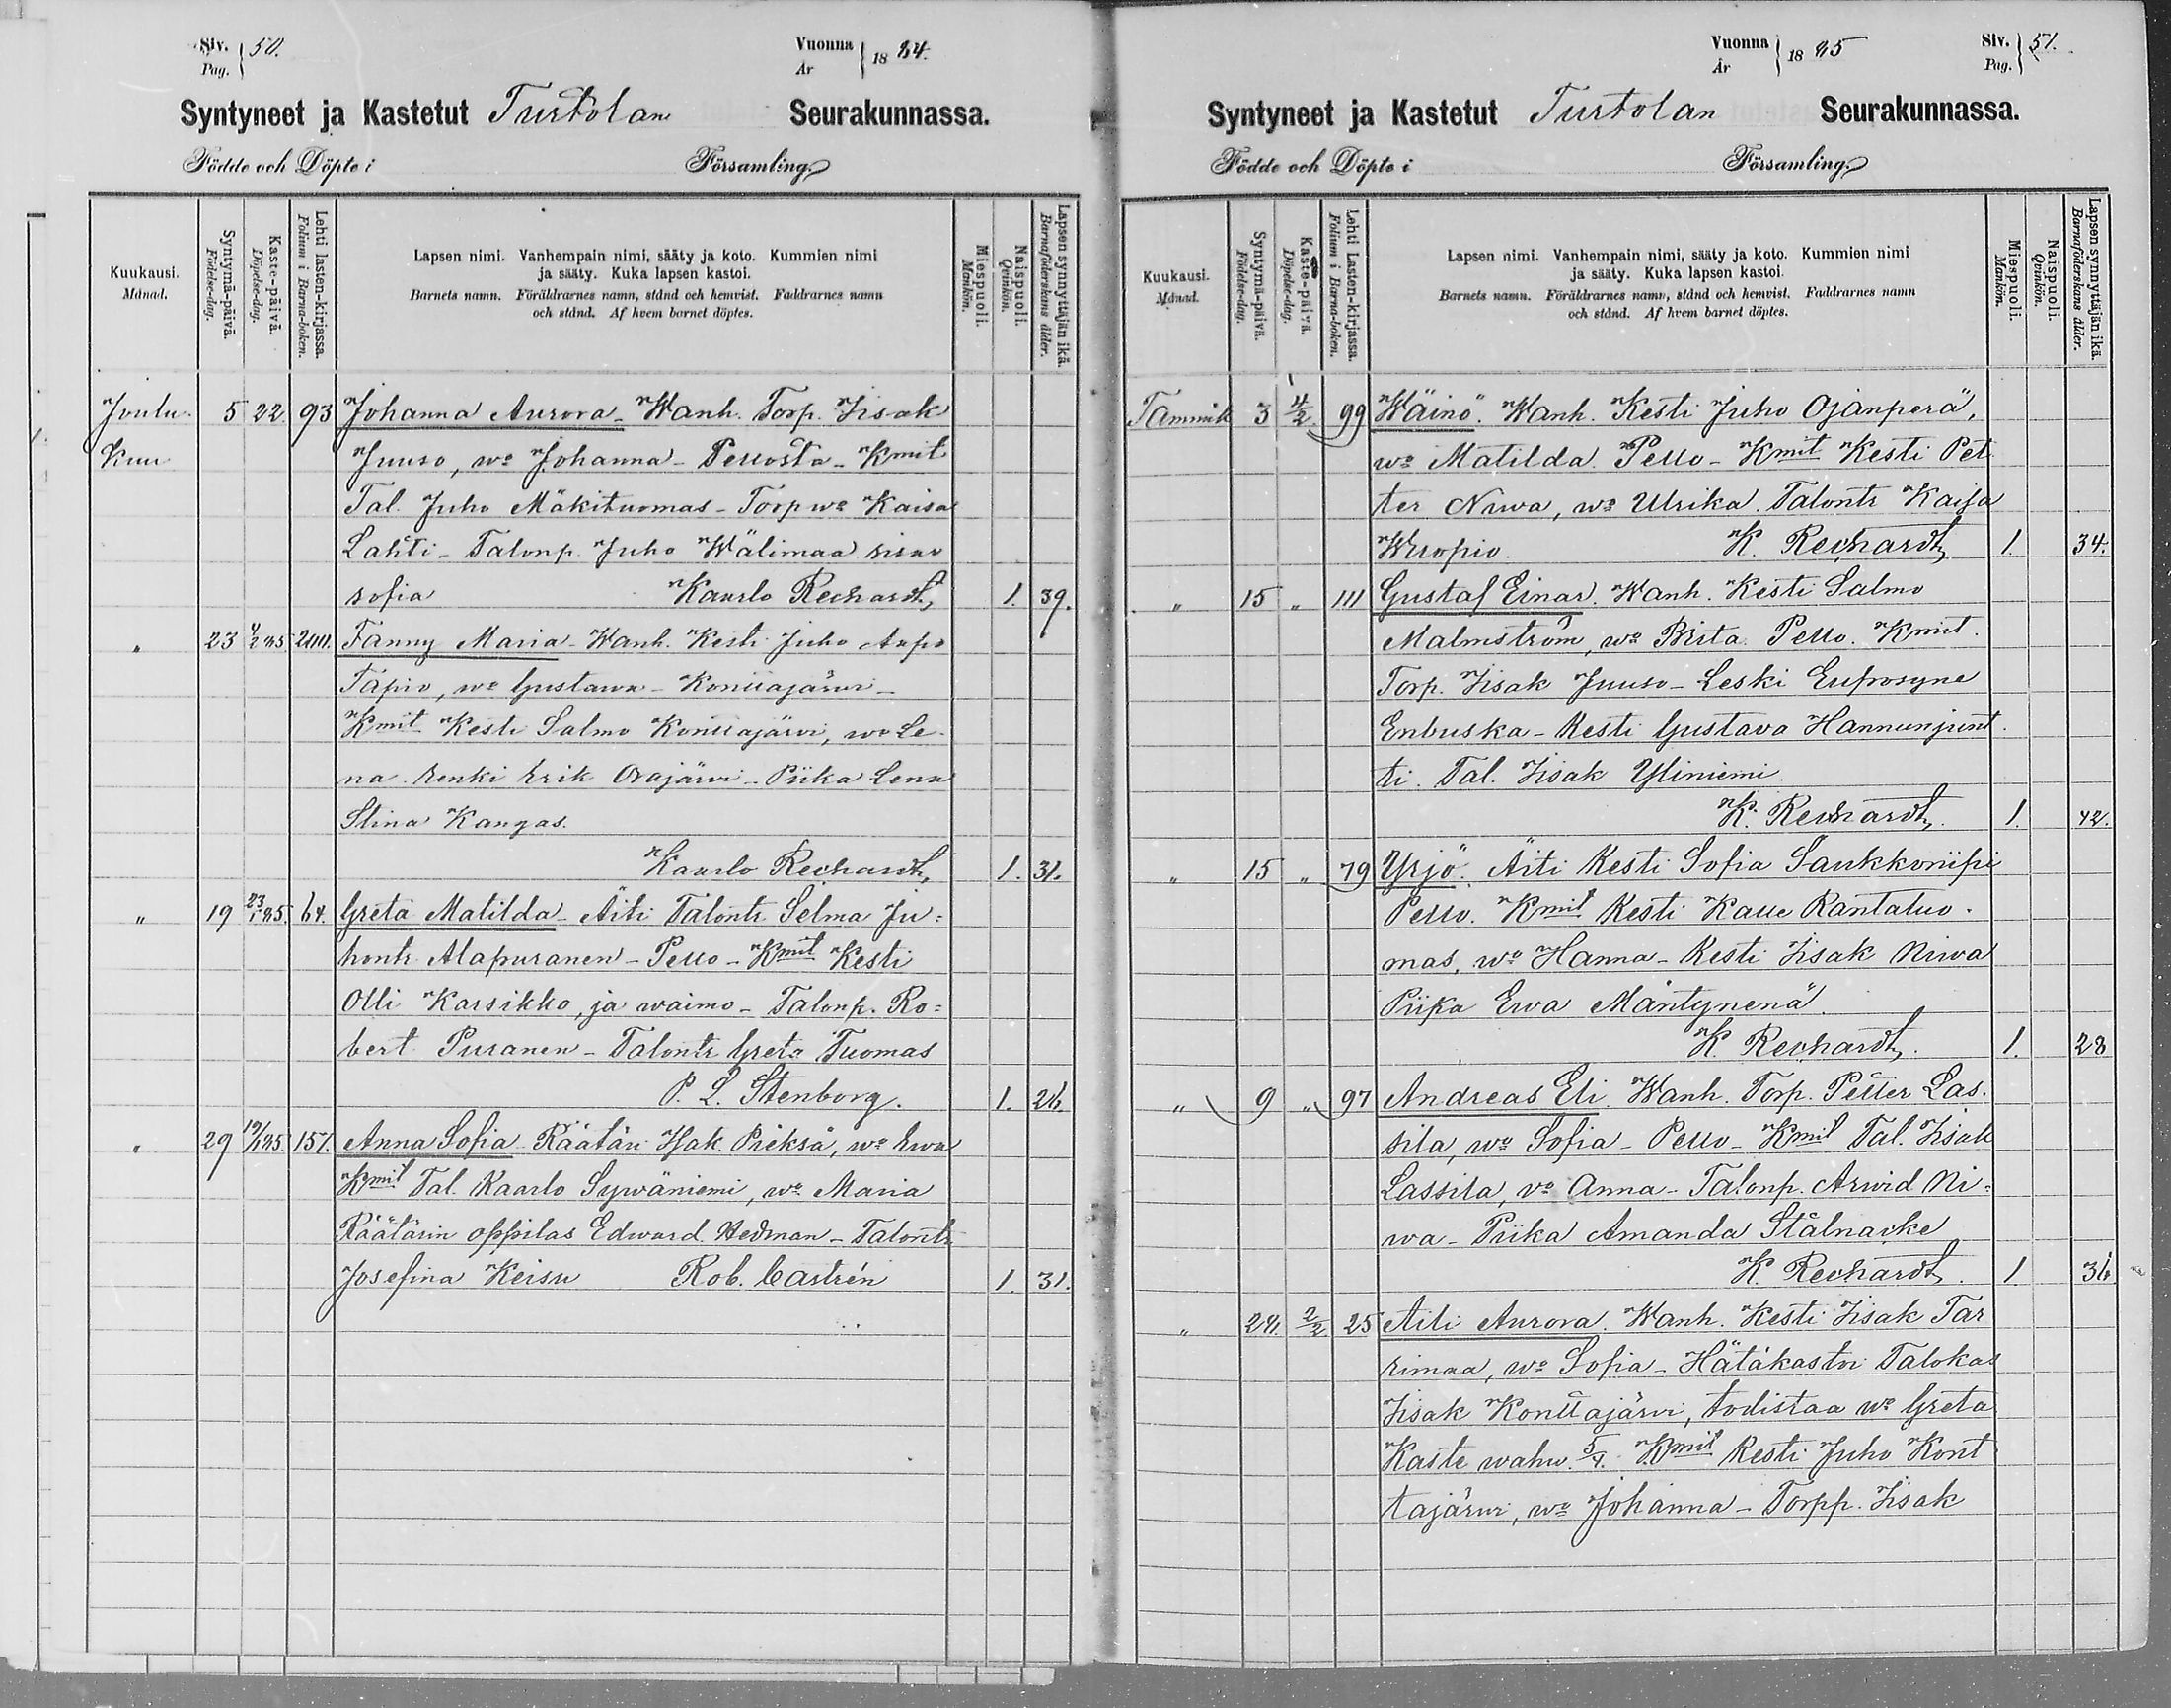 Siv. 50.
Pag.
Vuonna 1884.
År
Syntyneet ja Kastetut Turtolan Seurakunnassa.
Födde och Döpte i Församling.
Kuukausi.
Månad.
Syntymä-päivä.
Födelse-dag.
Kaste-päivä.
Döpelse-dag.
Lehti lasten-kirjassa.
Folium i Barna-boken.
Lapsen nimi. Vanhempain nimi, sääty ja koto. Kummien nimi
ja sääty. Kuka lapsen kastoi.
Barnets namn. Föräldrarnes namn, stånd och hemvist. Faddrarnes namn
och stånd. Af hvem barnet döptes.
Miespuoli.
Mankön.
Naispuoli.
Qvinkön.
Lapsen synnyttäjän ikä.
Barnaföderskans ålder.
Joulu- 5 22 93 Johanna Aurora - Wanh. Torp. Iisak
Kuu Juuso, wo Johanna - Pellosta - Kmit
Tal. Juho Mäkituomas - Torp wo Kaisa
Lahti - Talonp. Juho Wälimaa sisar
sofia Kaarlo Rechardt, 1. 39.
" 23 Fanny Maria - Wanh. Kesti Juho Aapo
Tapio, wo Gustawa - Konttajärwi -
Kmit Kesti Salmo Konttajärwi, wo Le-
na. Renki Erik Orajärwi - Piika Lena
Stina Kangas.
Kaarlo Rechardt, 1. 31.
" 19 23/1 85. 64. Greta Matilda - Äiti Talontr Selma Ju=
hontr Alapuranen - Pello - Kmit Kesti
Olli Karsikko, ja waimo - Talonp. Ro=
bert Puranen - Talontr Greta Tuomas
P. L. Stenborg. 1. 26
" 29 19/1 85. 157. Anna Sofia - Räätäri Isak Prěksä, wo Ewa
Kmit Tal. Kaarlo Sywäniemi, wo Maria
Räätärin oppilas Edward Hedman - Talontr
Josefina Keisu Rob. Castrén 1. 31.
Vuonna 1885
År
Siv. 51.
Pag.
Syntyneet ja Kastetut Turtolan Seurakunnassa.
Födde och Döpte i Församling.
Kuukausi.
Månad.
Syntymä-päivä.
Födelse-dag.
Kaste-päivä.
Döpelse-dag.
Lehti Lasten-kirjassa.
Folium i Barna-boken.
Lapsen nimi. Vanhempain nimi, sääty ja koto. Kummien nimi
ja sääty. Kuka lapsen kastoi.
Barnets namn. Föräldrarnes namn, stånd och hemvist. Faddrarnes namn
och stånd. Af hvem barnet döptes.
Miespuoli.
Mankön.
Naispuoli.
Qvinkön.
Lapsen synnyttäjän ikä.
Barnaföderskans ålder.
Tammik 3 4/2. 99 Wäinö. Wanh. Kesti Juho Ojanperä,
wo Matilda. Pello - Kmit Kesti Pet
ter Niwa, wo Ulrika. Talontr Kaisa
K. Rechardt, 1. 34.
" 15 " 111 Gustaf Einar. Wanh. Kesti Salmo
Malmström, wo Brita. Pello. Kmit.
Torp. Iisak Juuso - Leski Eufrosyne
Enbuska - Kesti Gustava Hannunjunt
ti. Tal. Iisak Yliniemi.
K. Rechardt, 1. 42.
" 15 " 79 Yrjö. Äiti Kesti Sofia Saukkoriipi
Pello. Kmit Kesti Kalle Rantatuo-
mas, wo Hanna - Kesti Iisak Niwa
Piika Ewa Mäntynenä.
K. Rechardt. 1. 28
" 9 " 97 Andreas Eli. Wanh. Torp. Petter Las-
sila, wo Sofia - Pello - Kmit Tal. Iisak
Lassila, vo Anna - Talonp. Arwid Ni=
wa - Piika Amanda Stålnacke
K. Rechardt. 1. 36
" 24. 2/2 25 Aili Aurora. Wanh. Kesti Iisak Tar
rimaa, wo Sofia - Hätäkastoi Talokas
Iisak Konttajärwi, todistaa wo Greta
Kaste wahw. 5/4. Kmit Kesti Juho Kont
tajärwi, wo Johanna - Torpp. Iisak